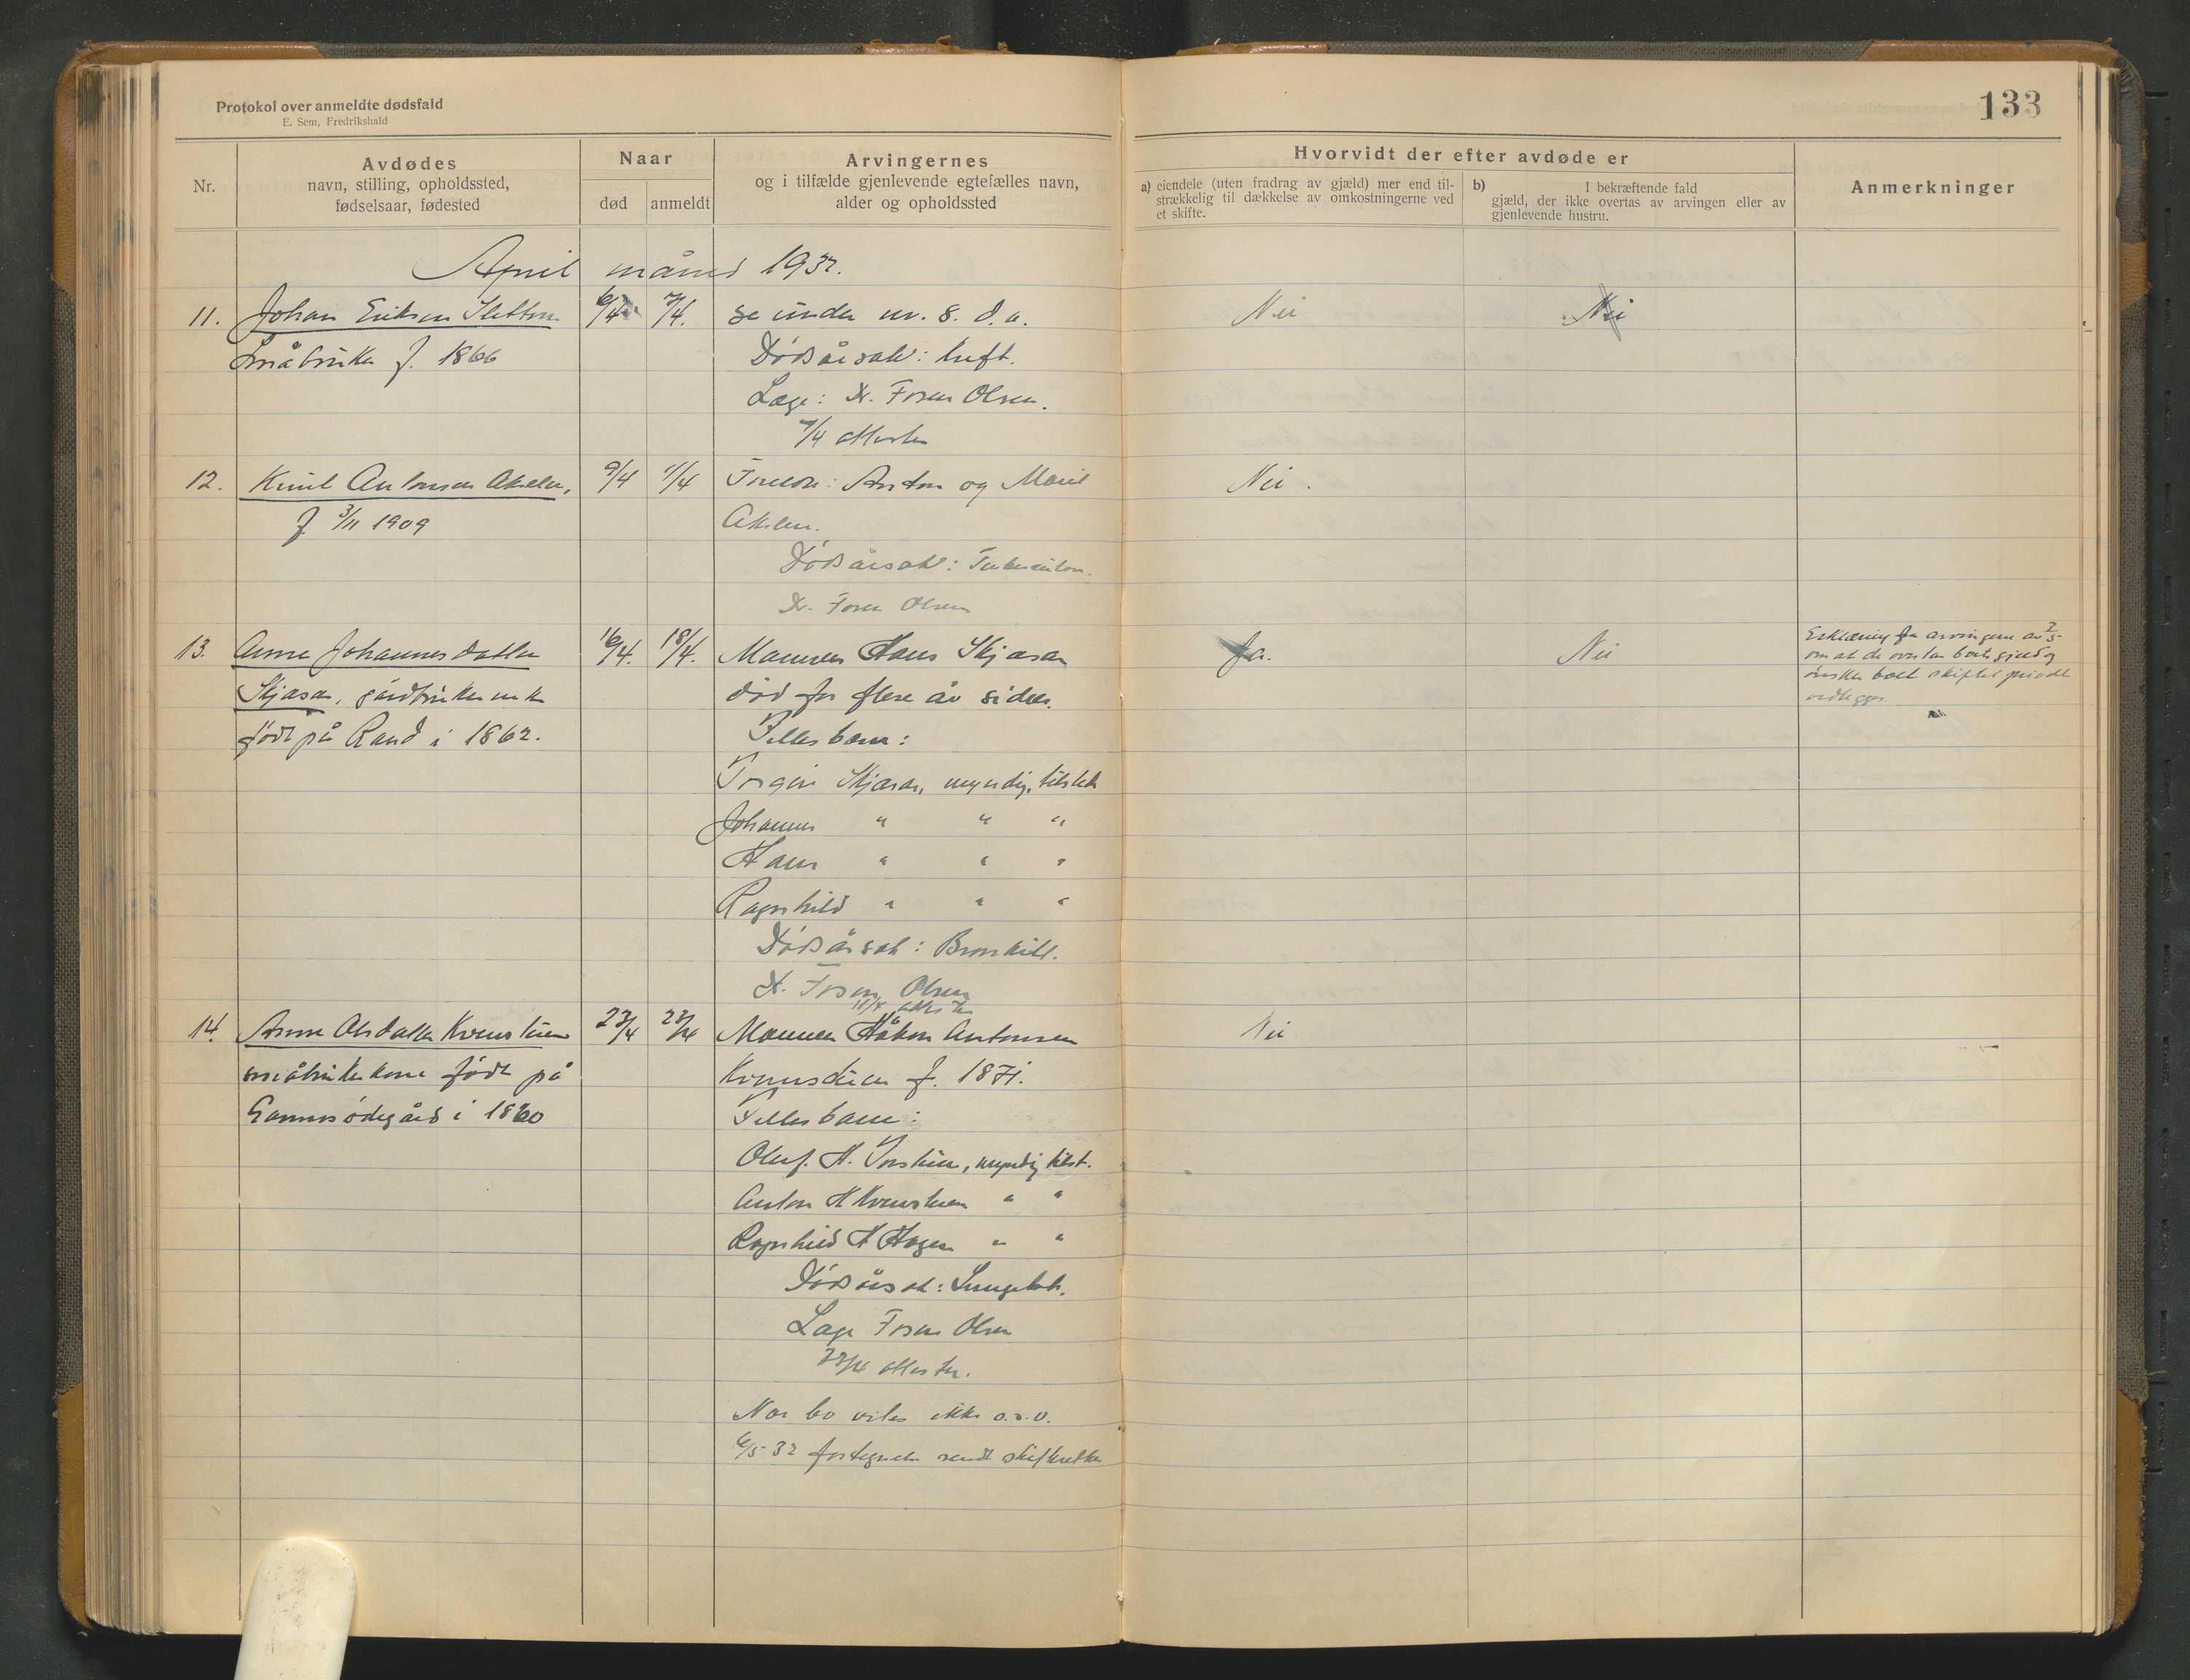 Protokol over anmeldte dødsfald
E. Sem, Fredrikshald
133
Nr.
Avdødes
navn, stilling, opholdssted,
fødselsaar, fødested
Naar
død
anmeldt
Arvingernes
og i tilfælde gjenlevende egtefælles navn,
alder og opholdssted
Hvorvidt der efter avdøde er
a) eiendele (uten fradrag av gjæld) mer end til-
strækkelig til dækkelse av omkostningerne ved
et skifte.
b) I bekræftende fald
gjæld, der ikke overtas av arvingen eller av
gjenlevende hustru.
Anmerkninger
April måned 1932.
11. Johan Eriksen Sletten 6/4 7/4. se under nr. 8. d.a. Nei Nei
Småbruker f. 1866 Dødsårsak:
Læge: Dr. Fosen Olsen.
7/4 attester
12. Knut Antonsen Akslen, 9/4 11/4 Foreldre: Anton og Marit Nei.
f 3/11 1909 Akslen.
Dødsårsak: Tuberkulose.
Dr. Fosen Olsen
13. Anne Johannesdatter 16/4. 18/4. Mannen Hans Skjåsar Ja. Nei
Skjåsar, gårdbrukerenke død for flere år siden.
født på Rand i 1862. Fellesbarn:
Erklæring fra arvingene av 2/5
om at de overtar boets gjeld og
ønsker boet skiftet privat
vedlegges
Torgeir Skjåsar, myndig, tilstede
Johannes " " "
Hans " " "
Ragnhild " " "
Dødsårsak: Bronkitt.
Dr. Fosen Olsen
18/4 attester
14. Anne Olsdatter Kvenstuen 23/4 23/4 Mannen Håkon Antonsen Nei
småbrukerkone født på Kvenstuen f. 1871.
i 1860 Fellesbarn:
Oluf H. , myndig tilst.
Anton H Kvenstuen " "
Ragnhild H Hagen " "
Dødsårsak: Lungebet.
Læge Fosen Olsen
23/4 attester.
Nor bo viles ikke o.s.v.
6/5 32 fortegnelse sendt skifteretten